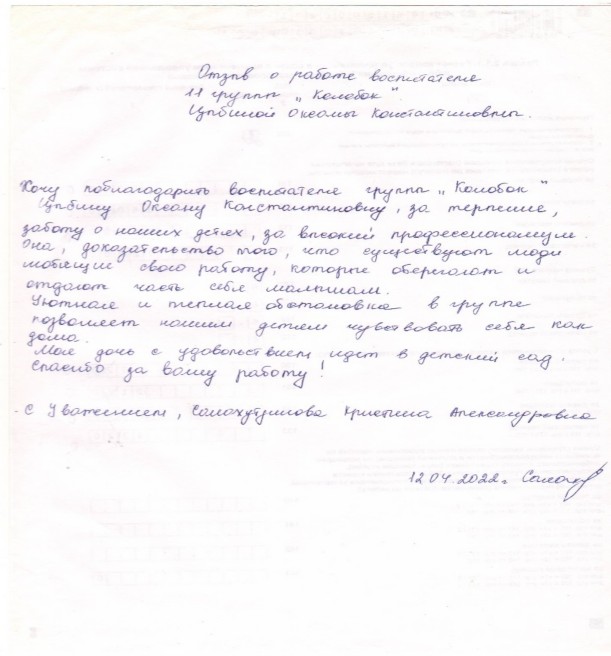 Отзыв о работе воспитателя
11 группы „Колобок".
Цыбиной Оксаны Константиновны.
Хочу поблагодарить воспитателя группы „Колобок"
Цыбину Оксану Константиновну, за терпение,
заботу о наших детях, за высокий профессионализм.
Она, доказательство того, что существуют люди
любящие свою работу, которые оберегают и
отдают часть себя малышам.
Уютная и теплая обстановка в группе
позволяет нашим детям чувствовать себя как
дома.
Моя дочь с удовольствием идет в детский сад.
Спасибо за вашу работу!
С Уважением, Салахутдинова Кристина Александровна
12.04.2022г.